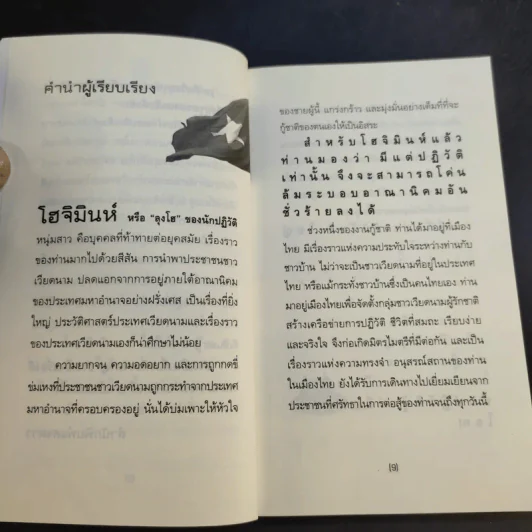 คำนำผู้เรียบเรียง
โฮจิมินห์ หรือ "ลุงโฮ" ของนักปฏิวัติ
หนุ่มสาว คือบุคคลที่ท้าทายต่อยุคสมัย เรื่องราว
ของท่านมากไปด้วยสีสัน การนำพาประชาชนชาว
เวียดนาม ปลดแอกจากการอยู่ภายใต้อาณานิคม
ของประเทศมหาอำนาจอย่างฝรั่งเศส เป็นเรื่องที่ยิ่ง
ใหญ่ ประวัติศาสตร์ประเทศเวียดนามและเรื่องราว
ของประเทศเวียดนามเองก็น่าศึกษาไม่น้อย
ความยากจน ความอดอยาก และการถูกกดขี่
ข่มเหงที่ประชาชนชาวเวียดนามถูกกระทำจากประเทศ
มหาอำนาจที่ครอบครองอยู่ นั่นได้บ่มเพาะให้หัวใจ
ของชายผู้นี้ แกร่งกร้าว และมุ่งมั่นอย่างเต็มที่ที่จะ
กู้ชาติของตนเองให้เป็นอิสระ
สำหรับโฮจิมินห์แล้ว
ท่านมองว่า มีแต่ปฏิวัติ
เท่านั้น จึงจะสามารถโค่น
ล้มระบอบอาณานิคมอัน
ชั่วร้ายลงได้
ช่วงหนึ่งของงานกู้ชาติ ท่านได้มาอยู่ที่เมือง
ไทย มีเรื่องราวแห่งความประทับใจระหว่างท่านกับ
ชาวบ้าน ไม่ว่าจะเป็นชาวเวียดนามที่อยู่ในประเทศ
ไทย หรือแม้กระทั่งชาวบ้านซึ่งเป็นคนไทยเอง ท่าน
มาอยู่เมืองไทยเพื่อจัดตั้งกลุ่มชาวเวียดนามผู้รักชาติ
สร้างเครือข่ายการปฏิวัติ ชีวิตที่สมถะ เรียบง่าย
และจริงใจ จึงก่อเกิดมิตรไมตรีที่มีต่อกัน และเป็น
เรื่องราวแห่งความทรงจำ อนุสรณ์สถานของท่าน
ในเมืองไทย ยังได้รับการเดินทางไปเยี่ยมเยียนจาก
ประชาชนที่ศรัทธาในการต่อสู้ของท่านจนถึงทุกวันนี้
(9)